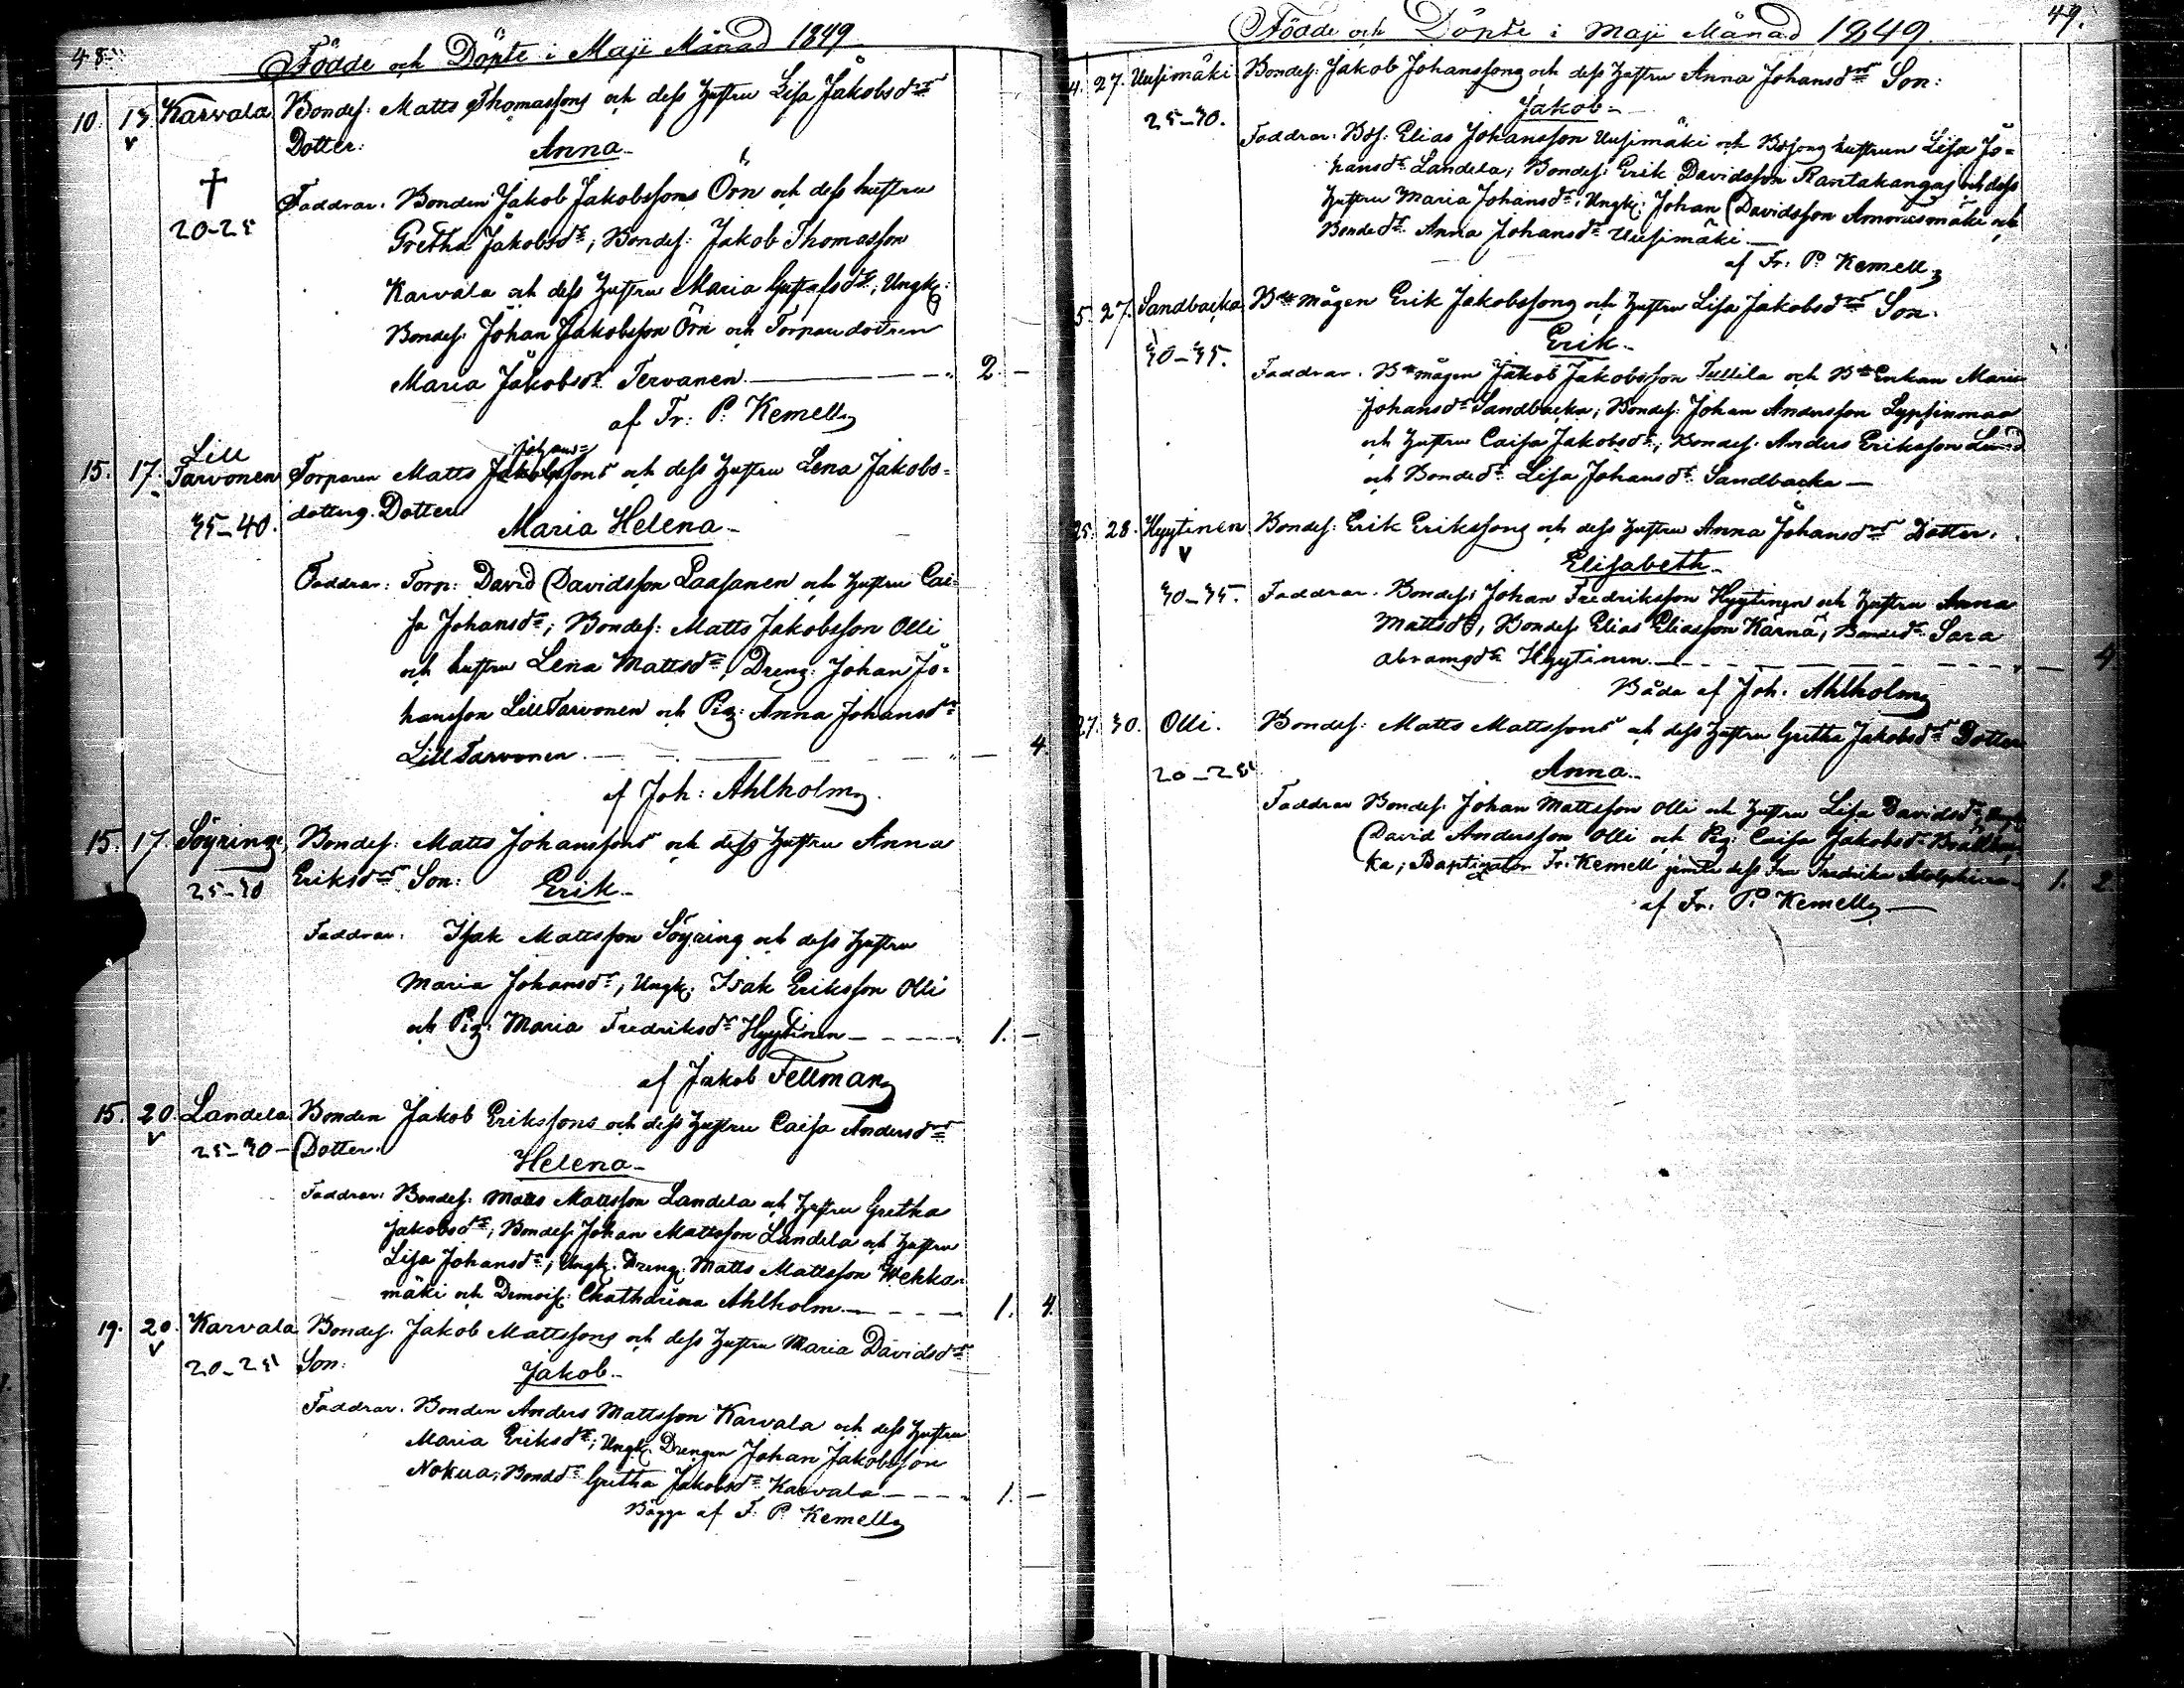 48.
Födde och Döpte i Maji Månad 1849
10. 13. Karvala Bondes: Matts Thomassons och dess hustru Lisa Jakobsdrs
Dotter: Anna
Faddrar. Bonden Jakob Jakobssons Örn och dess hustru
20-25
Gretha Jakobsdr; Bondes: Jakob Thomasson
Karvala och dess hustru Maria Gustafsdr; Ungk:
Bondes: Johan Jakobsson Örn och Torparedottren
Maria Jakobsdr Tervanen. 2. —
af Fr: P: Kemell
Johans=
15. 17. Lill Tarvonen Torparen Matts Jakobssons och dess hustru Lena Jakobs=
35-40. dotters Dotter
Maria Helena
Faddrar: Torp: David Davidsson Paasanen och hustru Cai=
sa Johansdr; Bondes: Matts Jakobsson Olli
och hustru Lena Mattsdr; Dreng: Johan Jo=
hansson Lill Tarvonen och Pig: Anna Johansdr
Lill Tarvonen. — 4.
af Joh: Ahlholm.
15. 17. Söyring Bondes: Matts Johanssons och dess hustru Anna
25-30 Eriksdrs Son: Erik
Faddrar. Isak Mattsson Söyring och dess hustru
Maria Johansdr; Ungk. Isak Eriksson Olli
och Pig: Maria Fredriksdr Hyytinen 1. —
af Jakob Fellman
15. 20. Landela Bonden Jakob Erikssons och dess hustru Caisa Andersdrs
25-30 Dotter. Helena
Faddrar: Bondes: Matts Mattsson Landela och hustru Gretha
Jakobsdr; Bondes. Johan Mattsson Landela och hustru
Lisa Johansdr; Ungk. Dreng. Matts Mattsson Wehka=
mäki och Demois: Chatharina Ahlholm. 1. 4.
19. 20. Karvala Bondes. Jakob Mattssons och dess hustru Maria Davidsdrs
20-25 Son: Jakob
Faddrar. Bonden Anders Mattsson Karvala och dess hustru
Maria Eriksdr; Ungk. Drengen Johan Jakobsson
Nokua; Bondedr Gretha Jakobsdr Karvala 1. —
Bägge af F. P. Kemell
49.
Födde och Döpte i Maji Månad 1849.
4. 27. Uusimäki Bondes. Jakob Johanssons och dess hustru Anna Johansdrs Son:
25-30. Jakob
Faddrar: Bds: Elias Johansson Uusimäki och hustrun Lisa Jo=
hansdr Landela; Bondes: Erik Davidsson Rantakangas och dess
hustru Maria Johansdr; Ungk: Johan Davidsson och
Bondedr Anna Johansdr Uusimäki
af Fr: P. Kemell
5. 27. Sandbacka Bdemågen Erik Jakobssons och hustru Lisa Jakobsdrs Son.
30-35. Erik
Faddrar. Bdemågen Jakob Jakobsson Tullila och Bde Enkan Maria
Johansdr Sandbacka; Bondes. Johan Andersson Lyyssinmaa
och hustru Caisa Jakobsdr; Bondes. Anders Eriksson Lund
och Bondedr Lisa Johansdr Sandbacka
25. 28. Hyytinen Bondes: Erik Erikssons och dess hustru Anna Johansdrs Dotter.
Elisabeth
30-35. Faddrar. Bondes: Johan Fredriksson Hyytinen och hustru Anna
Mattsdr, Bondes. Elias Eliasson Kärnä; Bondedr Sara
Abramsdr Hyytinen. — 4
Båda af Joh. Ahlholm
27. 30. Olli. Bondes: Matts Mattssons och dess hustru Gretha Jakobsdrs Dotter
20-25 Anna
Faddrar Bondes. Johan Mattsson Olli och hustru Lisa Davidsdr
David Andersson Olli och Pig. Caisa Jakobsdr
ka; Baptizator Fr: Kemell jemte dess Fru Fredrika 1. 2
af Fr. P. Kemell